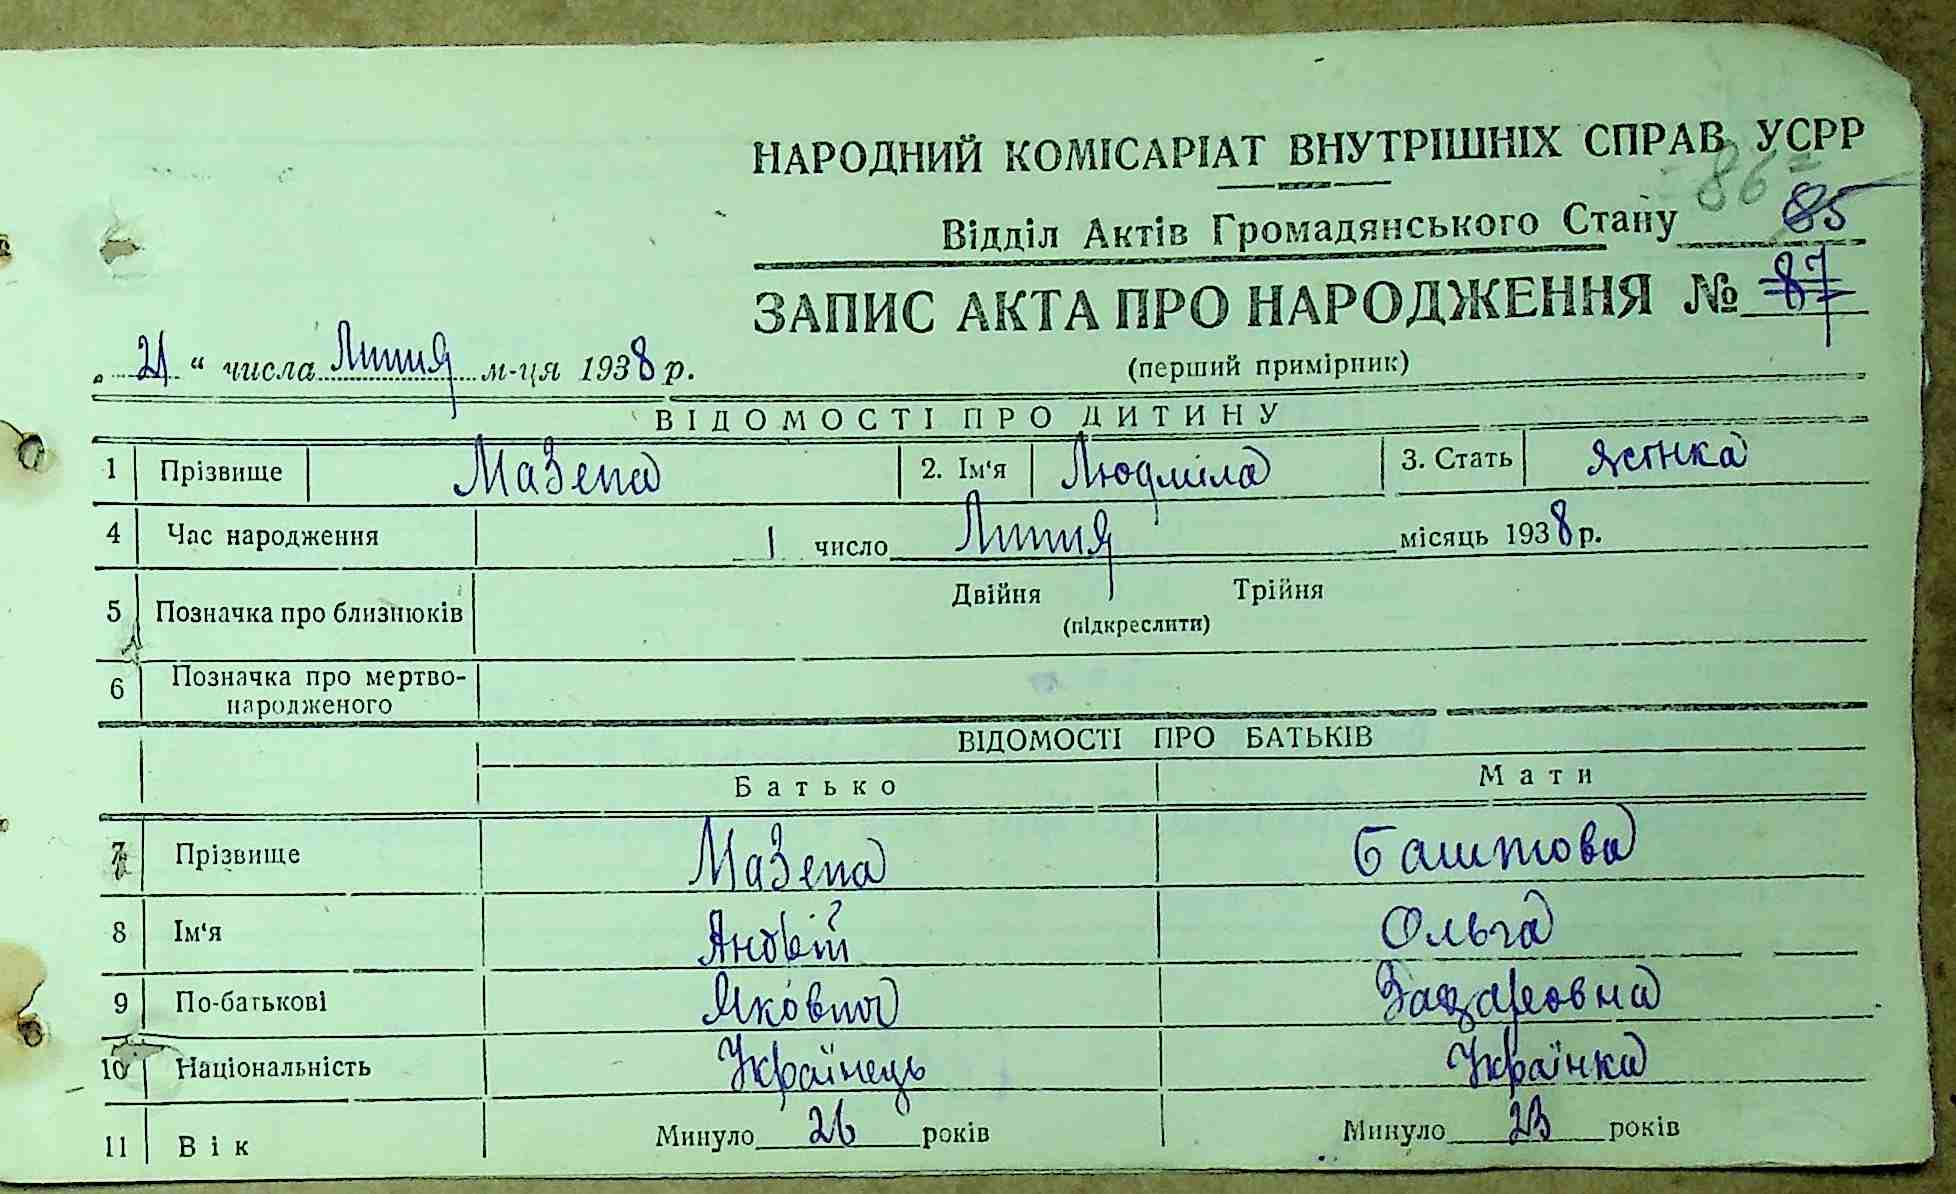 НАРОДНИЙ КОМІСАРІАТ ВНУТРІШНІХ СПРАВ УСРР
86
Відділ Актів Громадянського Стану 85
ЗАПИС АКТА ПРО НАРОДЖЕННЯ № 87
(перший примірник)
„21“ числа Липня м-ця 1938 р.
ВІДОМОСТІ ПРО ДИТИНУ
1 Прізвище Мазепа 2. Ім‘я Людміла 3. Стать
4 Час народження 1 число Липня місяць 1938 р.
5 Позначка про близнюків Двійня Трійня
(підкреслити)
6 Позначка про мертво-
народженого
ВІДОМОСТІ ПРО БАТЬКІВ
Батько Мати
7 Прізвище Мазепа Баштова
8 Ім‘я Андрій Ольга
9 По-батькові Якович Захаровна
10 Національність Українець Українка
11 Вік Минуло 26 років Минуло 23 років